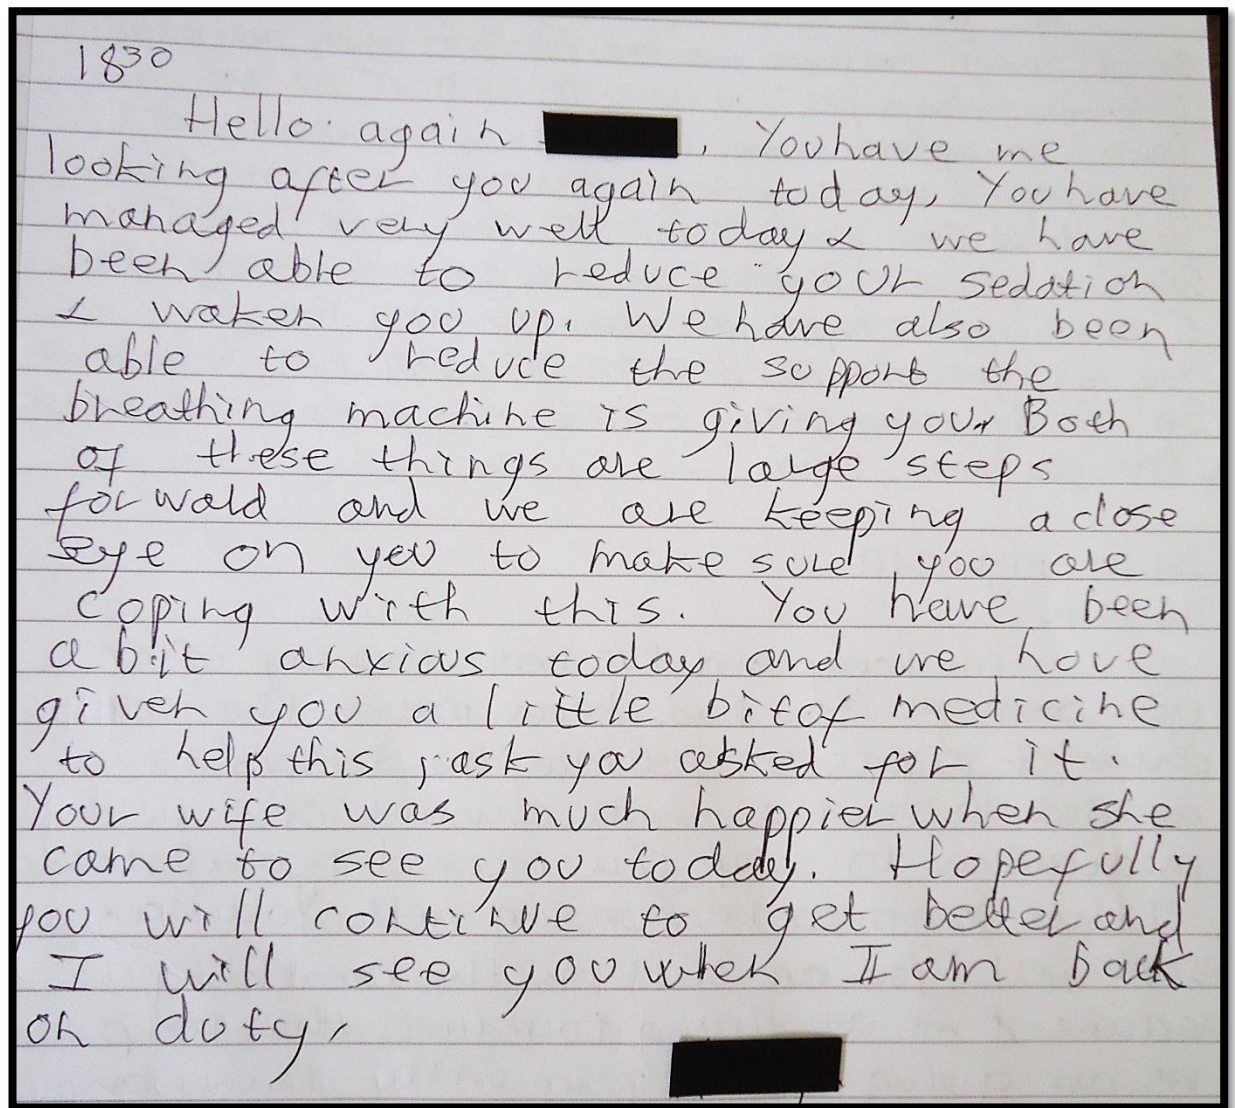 1830
Hello again , You have me
looking after you again today, You have
managed very well today & we have
been able to reduce your sedation
& waken you up. We have also been
able to reduce the support the
breathing machine is giving you. Both
of these things are large steps
forward and we are keeping a close
eye on you to make sure you are
coping with this. You have been
a bit anxious today and we have
given you a little bit of medicine
to help this ; ask you asked for it.
Your wife was much happier when she
came to see you today. Hopefully
you will continue to get better and
I will see you when I am back
on duty,